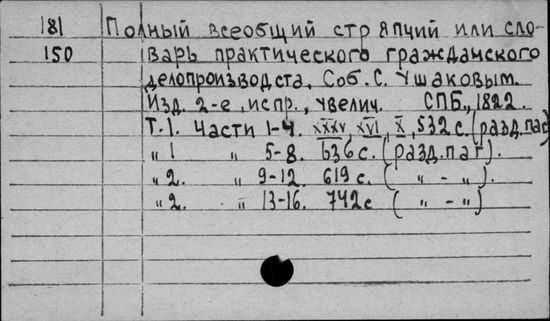 181 Полный всеобщий стряпчий или сло-
150 варь практического гражданского
делопроизводста. Соб. С. Ушаковым.
Изд. 2-е, испр., увелич. СПБ., 1822.
Т.1. Части 1-4. XXXV, XVI, X, 532 с. (разд.паг)
„ 1 „ 5-8. 636 с. (разд.паг).
„ 2. „ 9-12. 619 с. ( „ - „ ).
„ 2. „ 13-16. 742 с ( „ - „ )